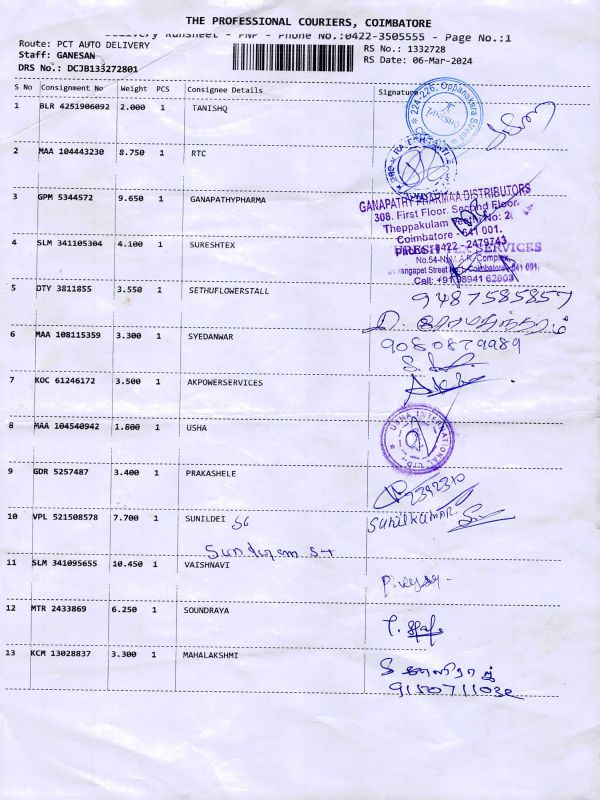 THE PROFESSIONAL COURIERS, COIMBATORE
Delivery Runsheet - PNP - Phone No.:0422-3505555 - Page No.:1
Route: PCT AUTO DELIVERY RS No.: 1332728
Staff: GANESAN RS Date: 06-Mar-2024
DRS No.: DCJB133272801
S No Consignment No Weight PCS Consignee Details Signature
1 BLR 4251906092 2.000 1 TANISHQ
224-226, Oppanakara Street TANISHQ
2 MAA 104443230 8.750 1 RTC
3 GPM 5344572 9.650 1 GANAPATHYPHARMA
GANAPATHY PHARMAA DISTRIBUTORS
308, First Floor, Second Floor,
Theppakulam Street No: 2,
Coimbatore - 641 001.
Phone: 0422 - 2479743
4 SLM 341105304 4.100 1 SURESHTEX
SERVICES
No.54-N.M.A.R. Complex,
Coimbatore-641 001.
Cell: +91 98941 62003
5 OTY 3811855 3.550 1 SETHUFLOWERSTALL
9487585857
6 MAA 108115359 3.300 1 SYEDANWAR
9080879989
7 KOC 61246172 3.500 1 AKPOWERSERVICES
8 MAA 104540942 1.800 1 USHA
USHA INTERNATIONAL LTD
9 GDR 5257487 3.400 1 PRAKASHELE
2392310
10 VPL 521508578 7.700 1 SUNILDEI
Sunilkumar.
Sundram St
11 SLM 341095655 10.450 1 VAISHNAVI
12 MTR 2433869 6.250 1 SOUNDRAYA
13 KCM 13028837 3.300 1 MAHALAKSHMI